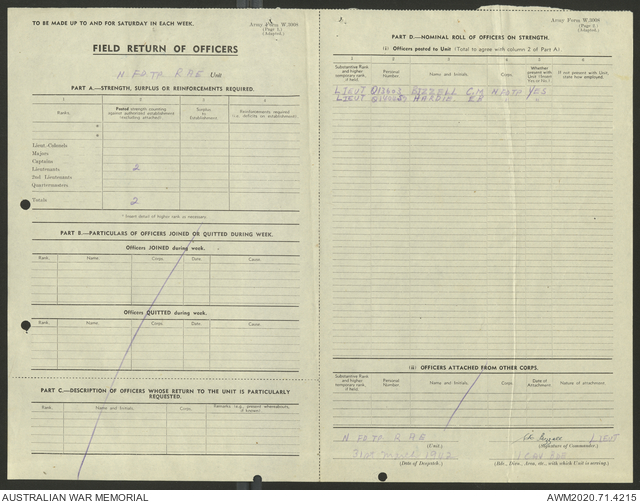 TO BE MADE UP TO AND FOR SATURDAY IN EACH WEEK.
Army Form W.3008
(Page 1)
(Adapted.)
FIELD RETURN OF OFFICERS
N FD TP RAE Unit
PART A.—STRENGTH, SURPLUS OR REINFORCEMENTS REQUIRED.
1 2 3 4
Ranks. Posted strength counting against authorized establishment (including attached). Surplus to Establishment. Reinforcements required (i.e. deficits on establishment).
*
*
Lieut.-Colonels
Majors
Captains
Lieutenants 2
2nd Lieutenants
Quartermasters
Totals 2
* Insert detail of higher rank as necessary.
PART B.—PARTICULARS OF OFFICERS JOINED OR QUITTED DURING WEEK.
Officers JOINED during week.
Rank. Name. Corps. Date. Cause.
Officers QUITTED during week.
Rank. Name. Corps. Date. Cause.
PART C.—DESCRIPTION OF OFFICERS WHOSE RETURN TO THE UNIT IS PARTICULARLY REQUESTED.
Rank. Name and Initials. Corps. Remarks (e.g., present whereabouts, if known).
2.
Army Form W.3008
(Page 2.)
(Adapted.)
PART D.—NOMINAL ROLL OF OFFICERS ON STRENGTH.
(i) Officers posted to Unit (Total to agree with column 2 of Part A).
1 2 3 4 5 6
Substantive Rank and higher temporary rank, if held. Personal Number. Name and Initials. Corps. Whether present with Unit (Insert Yes or No). If not present with Unit, state how employed.
LIEUT BIZZELL C.M. N FD TP YES
LIEUT HARDIE E R "
(ii) OFFICERS ATTACHED FROM OTHER CORPS.
Substantive Rank and higher temporary rank, if held. Personal Number. Name and Initials. Corps. Date of Attachment. Nature of attachment.
N FD TP RAE LIEUT
(Unit.) (Signature of Commander.)
31st March 1942 1 CAV BDE
(Date of Despatch.) (Bde., Divn., Area, etc., with which Unit is serving.)
AUSTRALIAN WAR MEMORIAL
AWM2020.71.4215